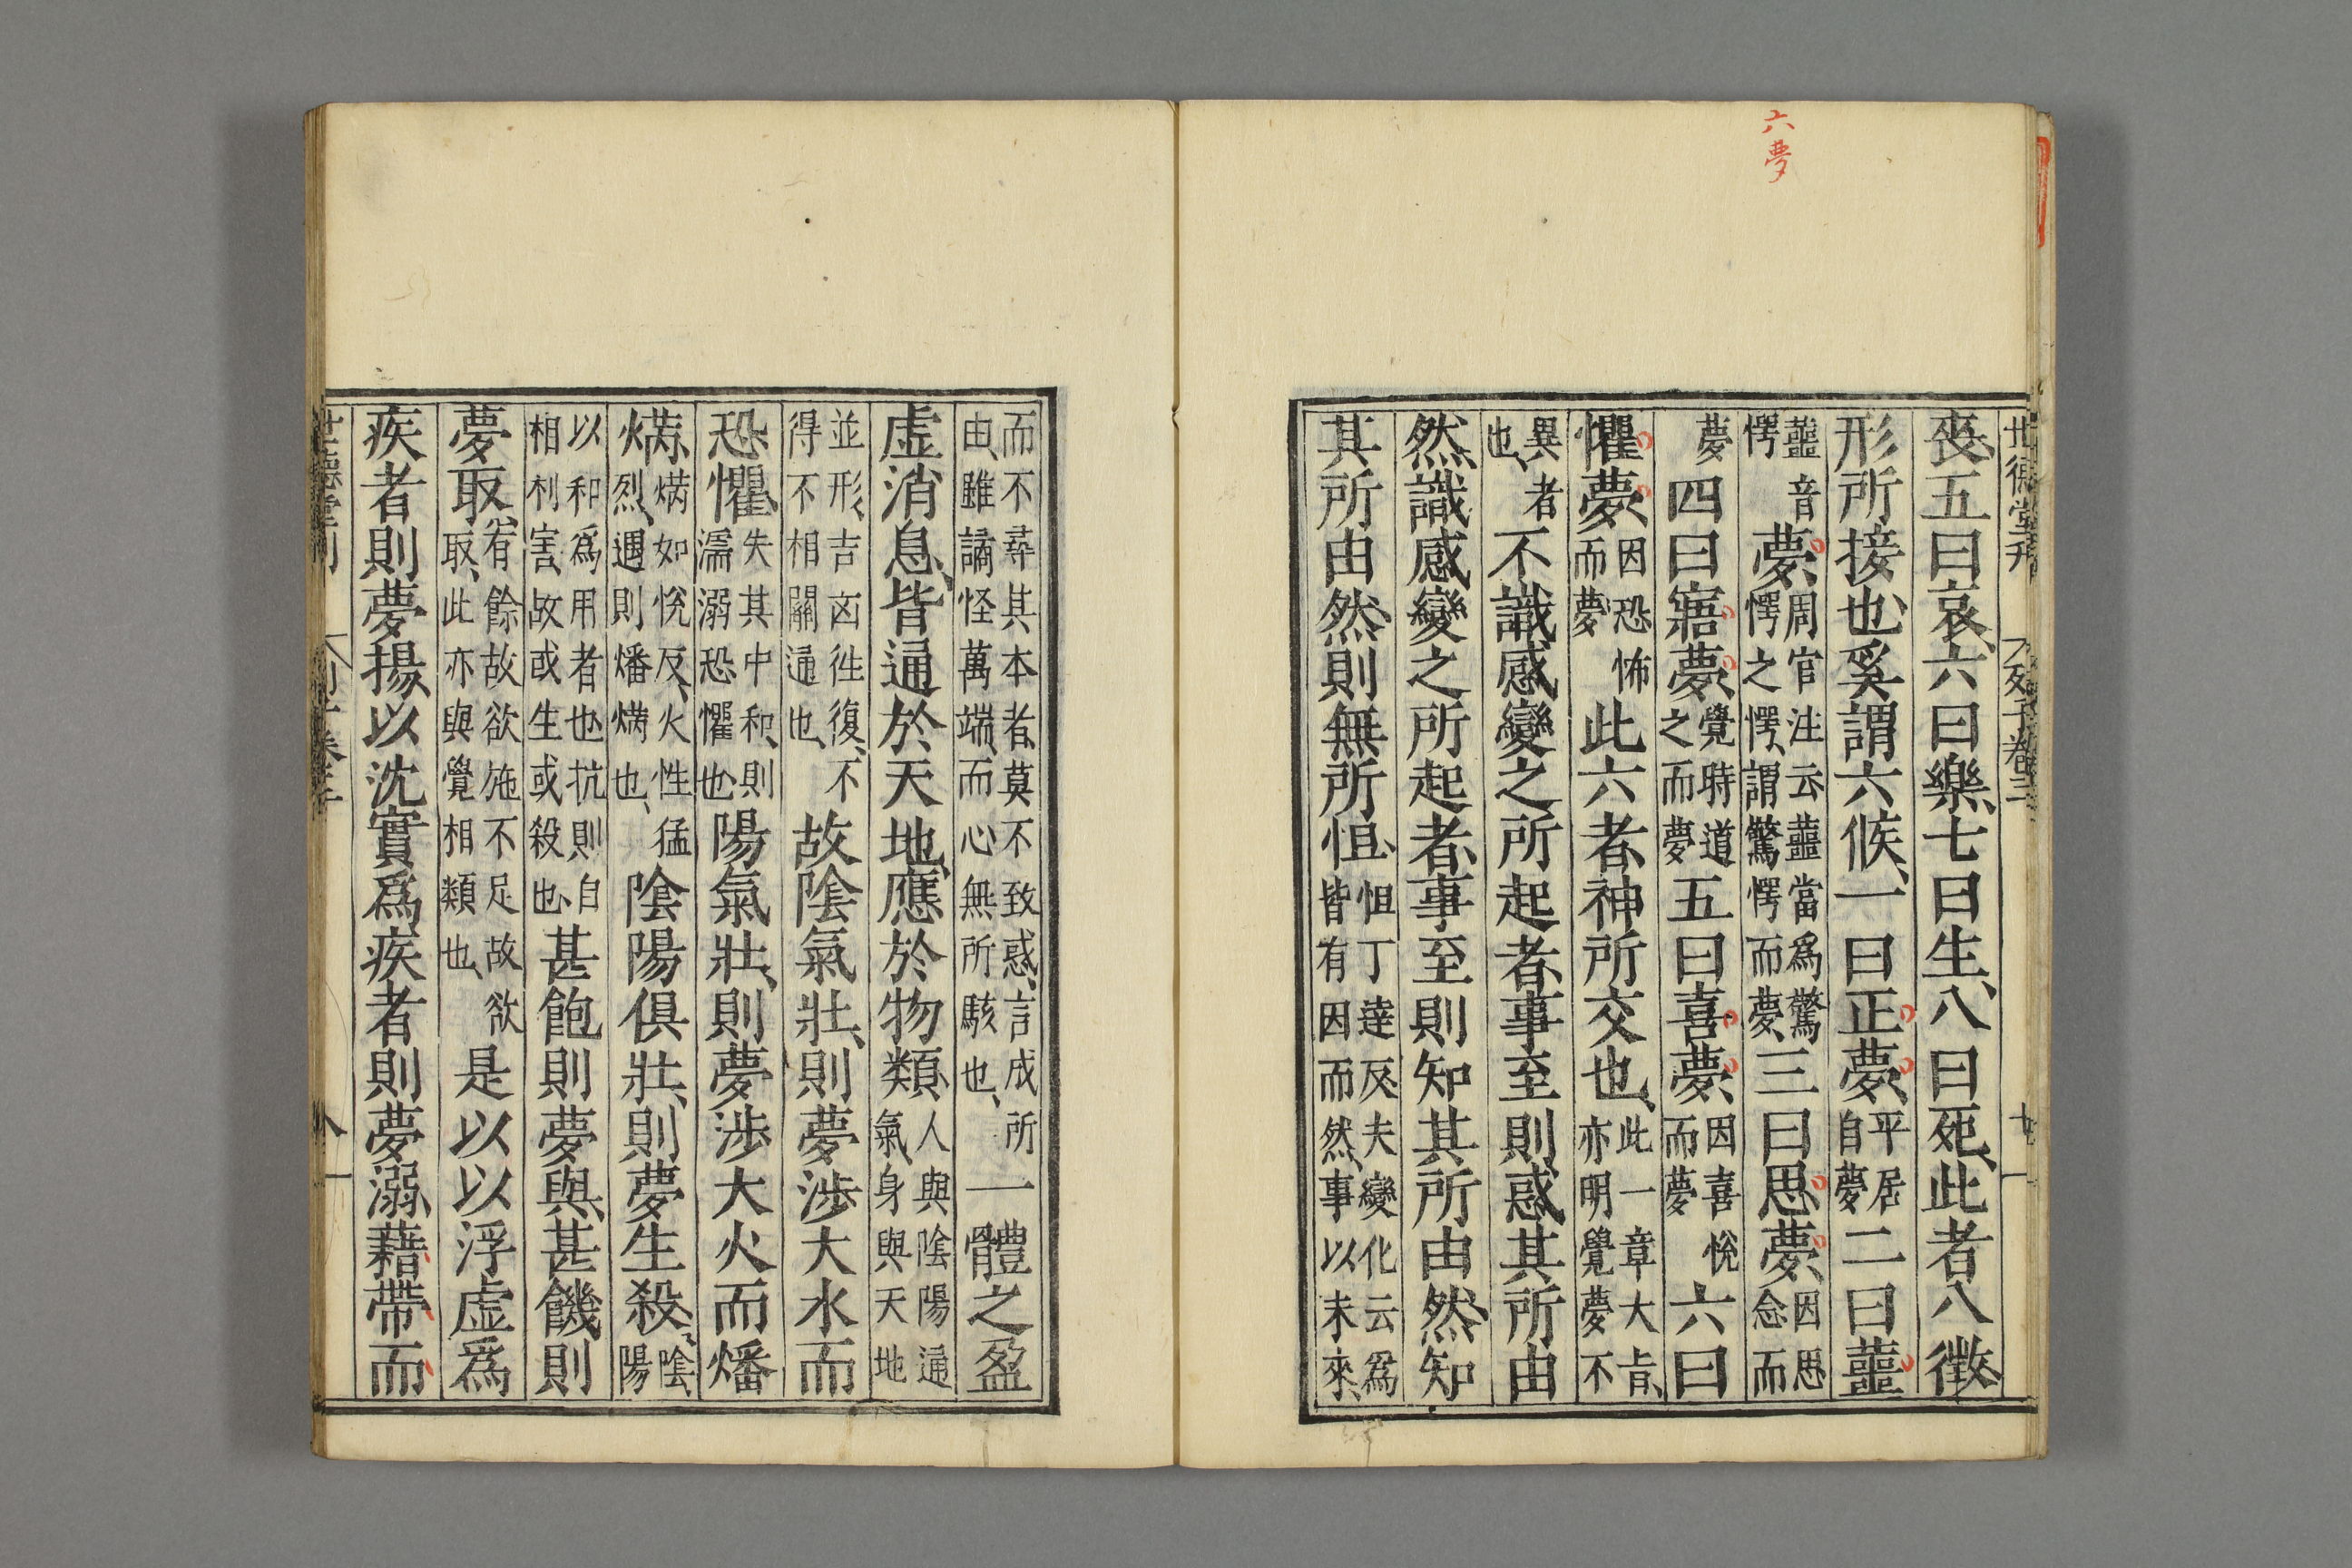 六夢
世德堂刊 列子卷三
喪、五曰哀、六曰樂、七曰生、八曰死、此者八徵
形所接也、奚謂六候、一曰正夢、平居自夢二曰蘁
蘁音愕夢、周官注云蘁當為驚愕之愕、謂驚愕而夢、三曰思夢、因思念而
夢四曰寤夢、覺時道之而夢五曰喜夢、因喜悅而夢六曰
懼夢、因恐怖而夢此六者、神所交也、此一章大旨、亦明覺夢不
異者也、不識感變之所起者、事至則惑其所由
然、識感變之所起者、事至則知其所由然、知
其所由然、則無所怛、怛丁達反、夫變化云爲皆有因而然、事以未來、
而不尋其本者、莫不致惑、言成所由、雖譎怪萬端、而心無所駭也、一體之盈
虛消息、皆通於天地、應於物類、人與陰陽通氣、身與天地
並形、吉凶徃復、不得不相關通也、故陰氣壯、則夢涉大水而
恐懼、失其中和、則濡溺恐懼也、陽氣壯、則夢涉大火而燔
焫、焫如悅反、火性猛烈、遇則燔焫也、陰陽俱壯、則夢生殺、陰陽
以和爲用者也、抗則自相利害、故或生或殺也、甚飽則夢與、甚饑則
夢取、有餘故欲施、不足故欲取、此亦與覺相類也、是以以浮虛爲
疾者則夢揚、以沈實爲疾者則夢溺、藉帶而
世德堂刊 列子卷三 八